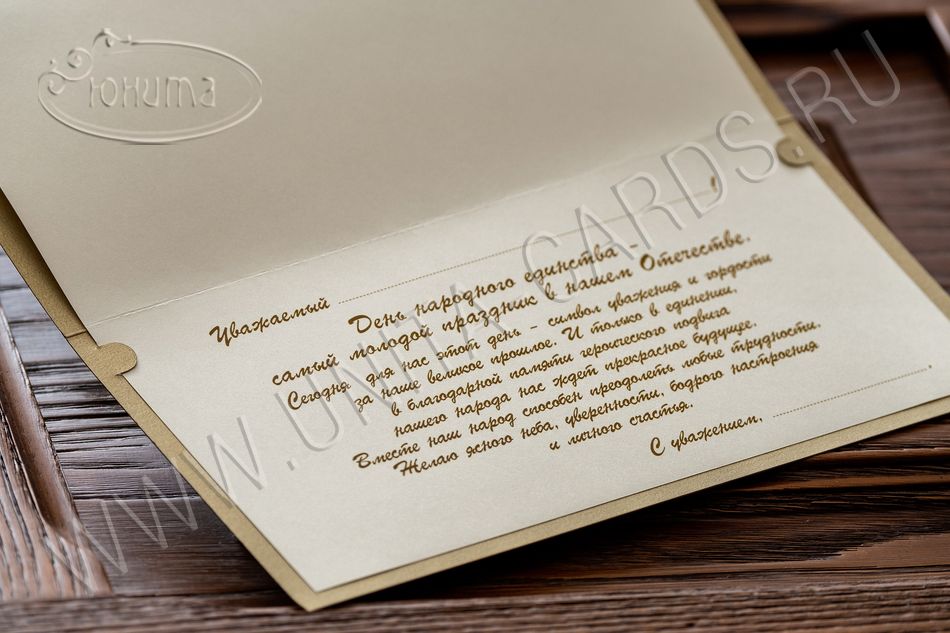 Юнита
WWW.UNITA-CARDS.RU
Уважаемый !
День народного единства -
самый молодой праздник в нашем Отечестве.
Сегодня для нас этот день - символ уважения и гордости
за наше великое прошлое. И только в единении,
в благодарной памяти героического подвига
нашего народа нас ждет прекрасное будущее.
Вместе наш народ способен преодолеть любые трудности.
Желаю ясного неба, уверенности, бодрого настроения
и личного счастья.
С уважением, .